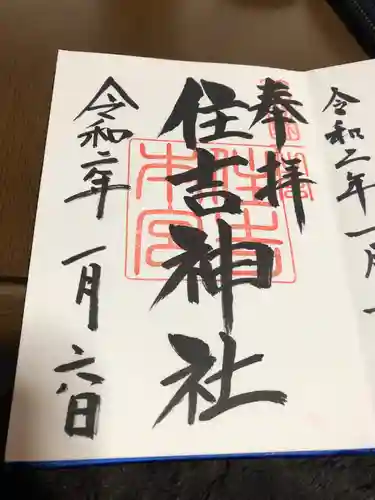 奉拝
住吉神社
令和二年
一月
六日
令和二年一月